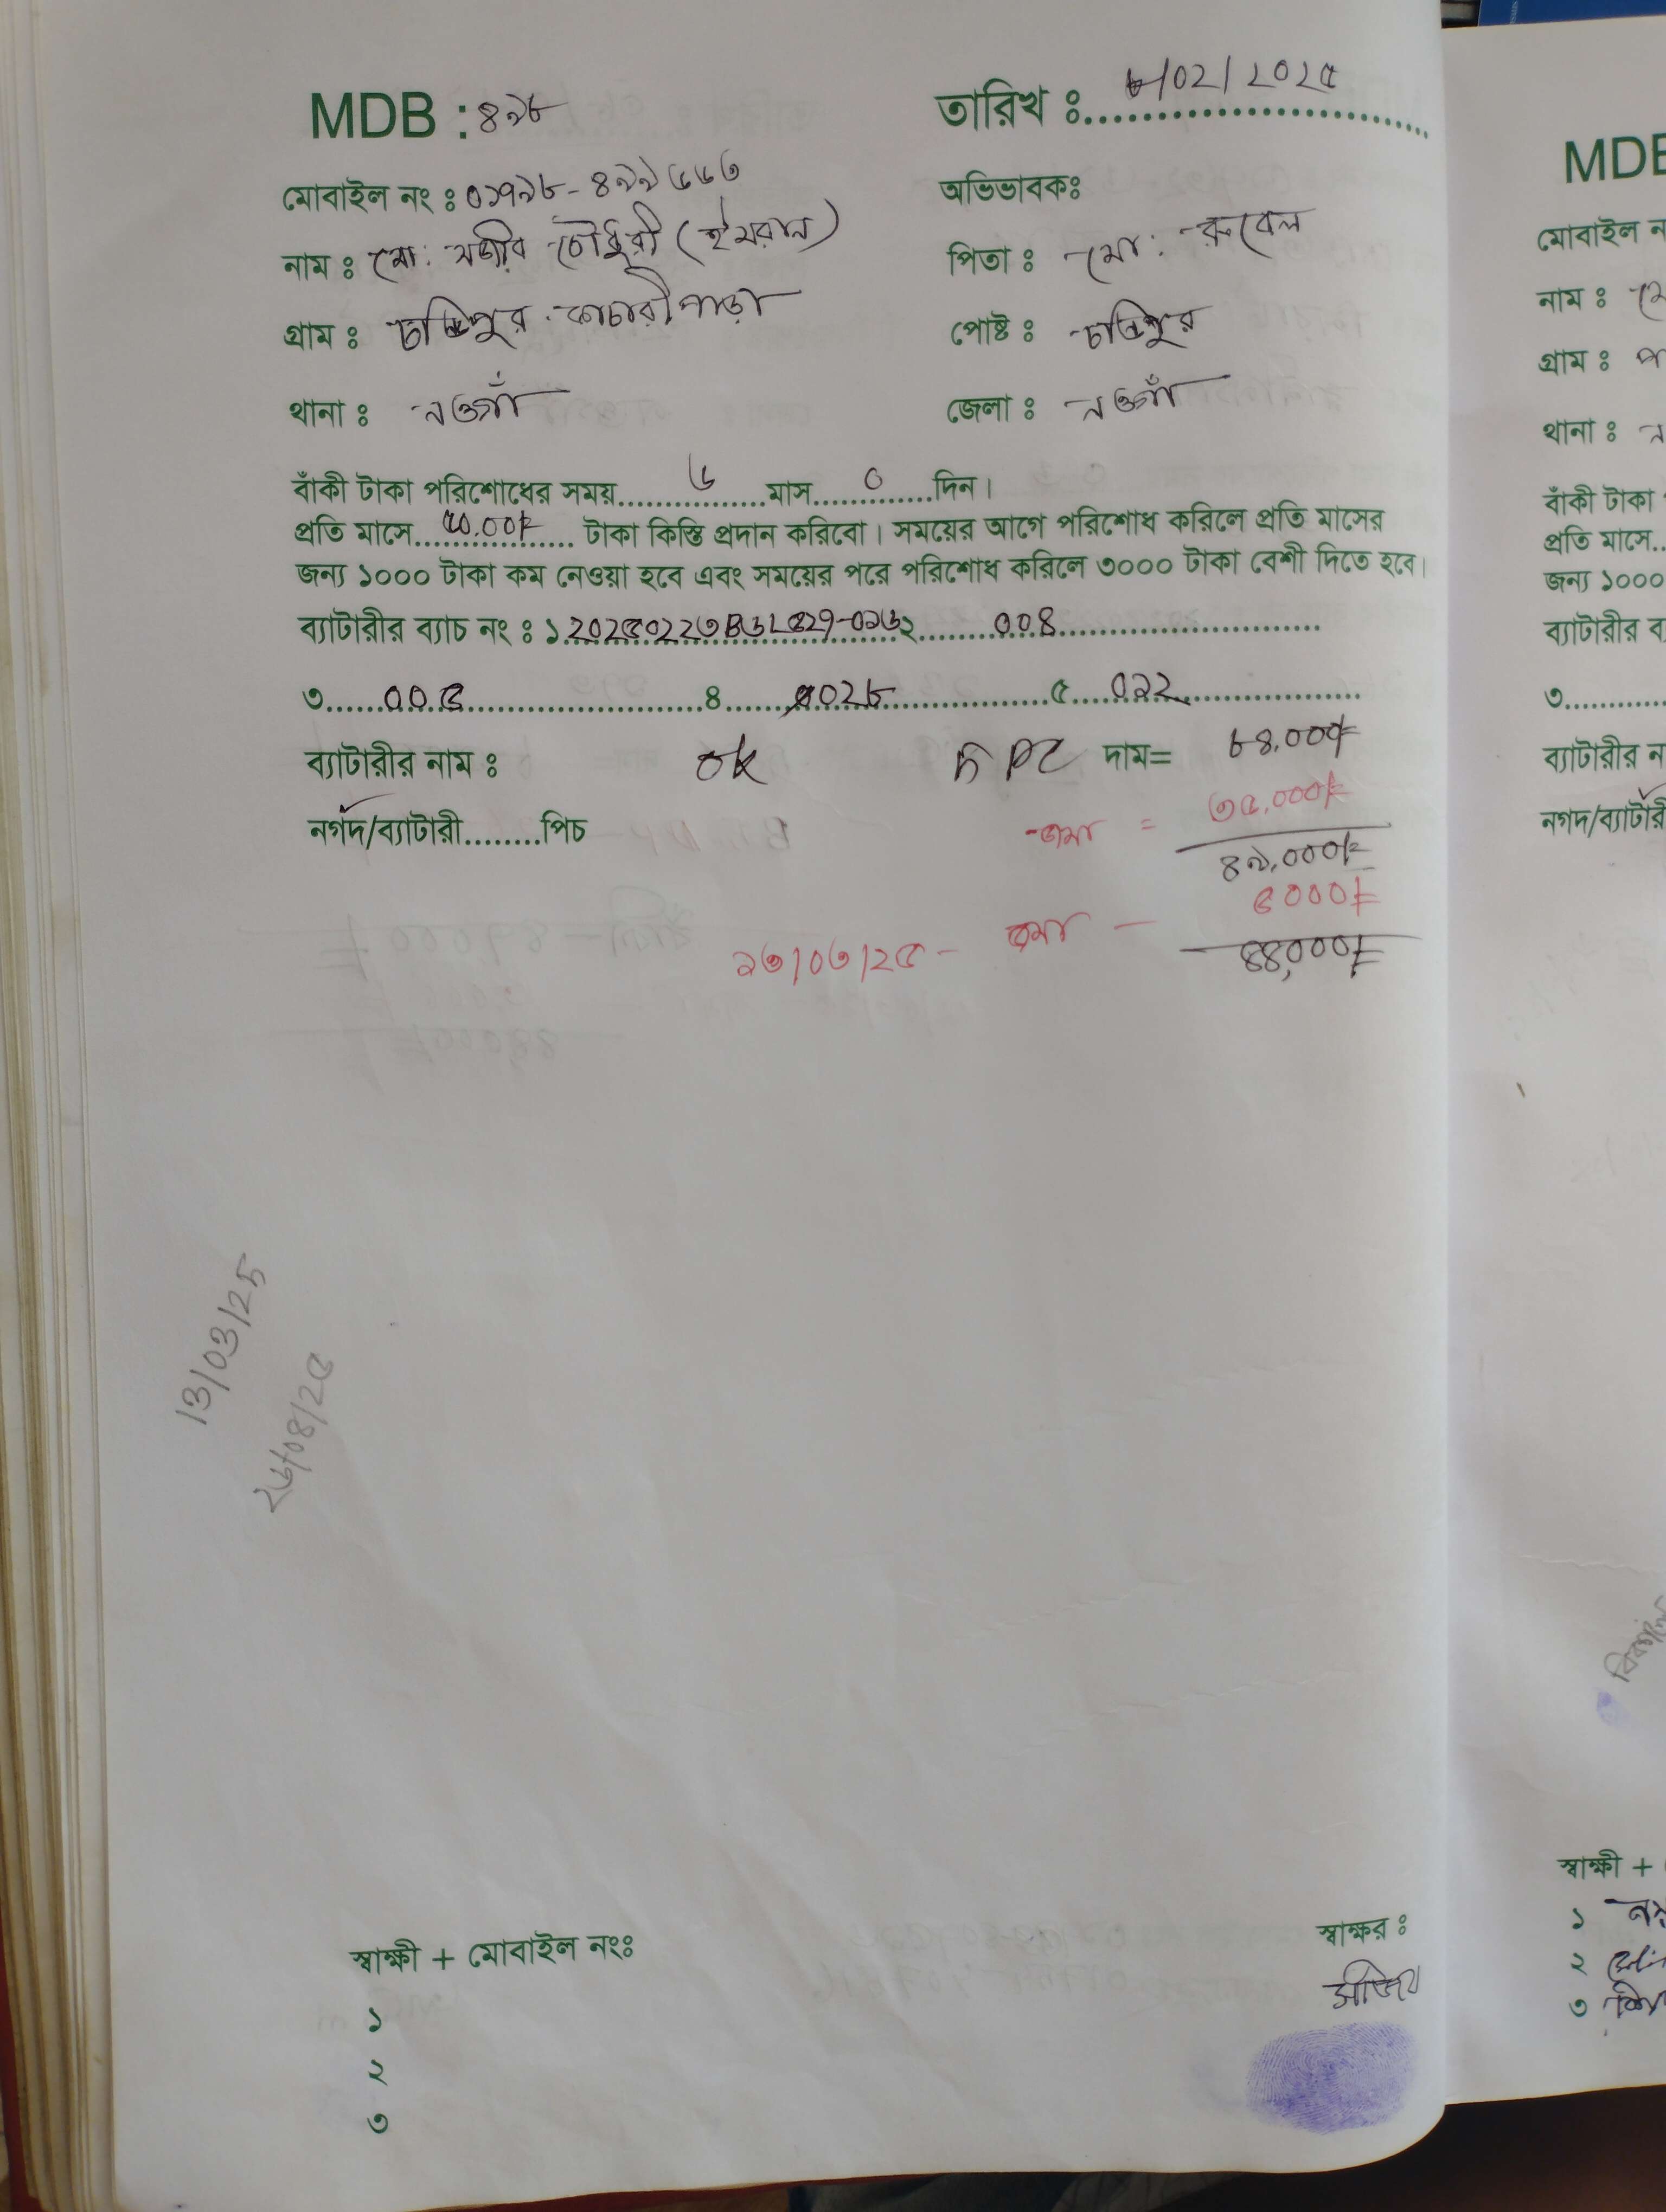 MDB : ৪৯৮
তারিখ ঃ ৮/০২/২০২৫
মোবাইল নং ঃ ০১৭৯৮-৪৯৯৬৬৩
অভিভাবকঃ
নাম ঃ মো: সজীব চৌধুরী (ইমরান)
পিতা ঃ মো: রুবেল
গ্রাম ঃ চন্ডিপুর কাচারীপাড়া
পোষ্ট ঃ চন্ডিপুর
থানা ঃ নওগাঁ
জেলা ঃ নওগাঁ
বাঁকী টাকা পরিশোধের সময়..........৬..........মাস..........০..........দিন।
প্রতি মাসে.......... ..........টাকা কিস্তি প্রদান করিবো। সময়ের আগে পরিশোধ করিলে প্রতি মাসের
জন্য ১০০০ টাকা কম নেওয়া হবে এবং সময়ের পরে পরিশোধ করিলে ৩০০০ টাকা বেশী দিতে হবে।
ব্যাটারীর ব্যাচ নং ঃ ১ ২..........০০৪..........
৩..........০০৫..........৪..........০২৮..........৫..........০২২..........
ব্যাটারীর নাম ঃ ok 5 PC দাম= ৮৪,০০০/=
নগদ/ব্যাটারী........পিচ
জমা = ৩৫,০০০/=
৪৯,০০০/=
৫০০০/=
১৩/০৩/২৫ - জমা -
৪৪,০০০/=
13/03/25
২৬/০৪/২৫
স্বাক্ষী + মোবাইল নংঃ
স্বাক্ষর ঃ
১
২
৩
সজিব
MDB
মোবাইল ন
নাম ঃ
গ্রাম ঃ
থানা ঃ
বাঁকী টাকা
প্রতি মাসে..
জন্য ১০০০
ব্যাটারীর ব
৩..........
ব্যাটারীর ন
নগদ/ব্যাটারী
স্বাক্ষী +
১
২
৩